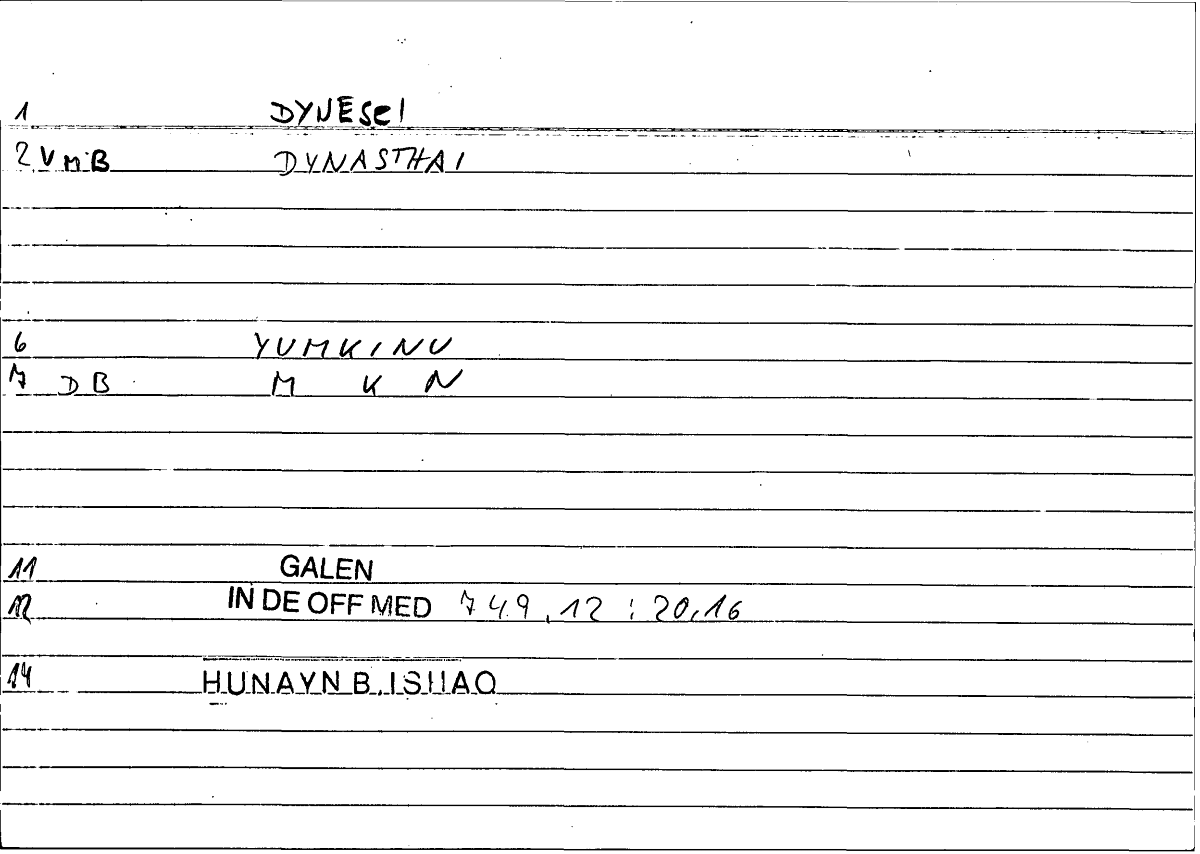 1 DYNESEI
2 VMB DYNASTHAI
6 YUMKINU
7 DB M K N
11 GALEN
12 IN DE OFF MED 749,12 : 20,16
14 HUNAYN B. ISHAQ